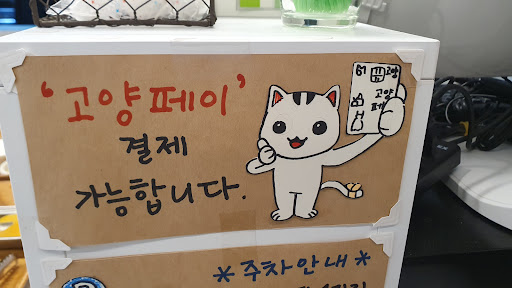 '고양페이'
결제
가능합니다.
고양
고양
페
*주차안내*